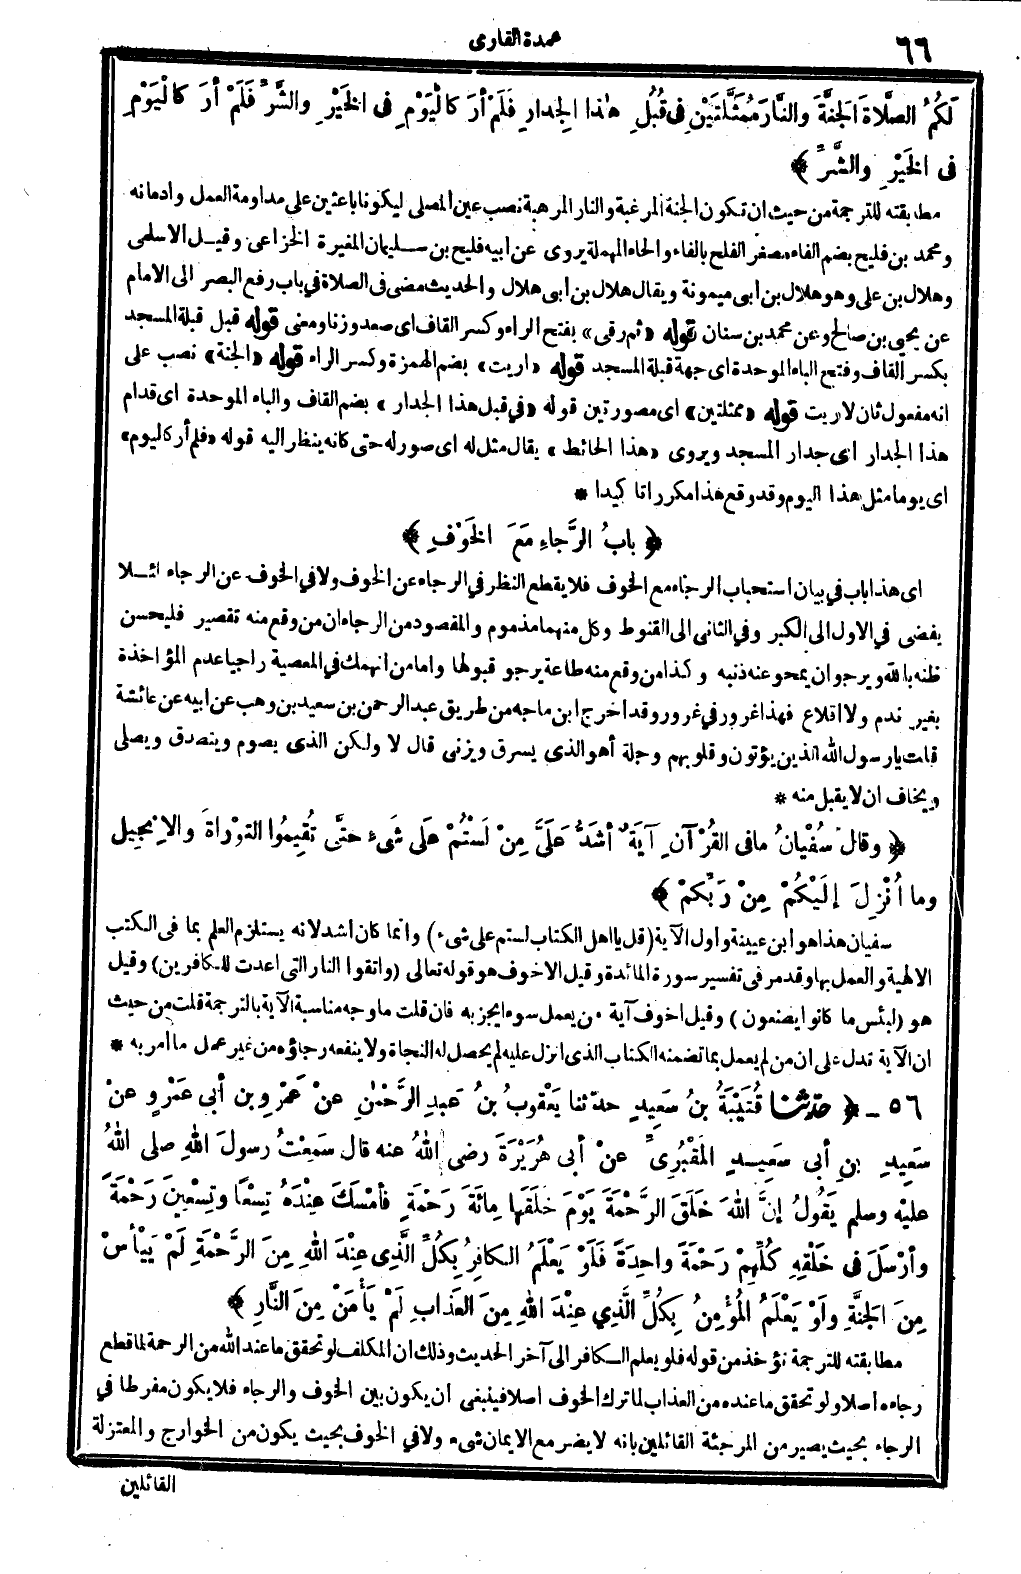 ٦٦
عمدة القارى
لَكُمُ الصَّلاَةَ الجَنَّةَ والنَّارَ مُمَثَّلَتَيْنِ فى قُبُلِ هٰذا الجِدارِ فَلَمْ أرَ كالْيَوْمِ فى الخَيْرِ والشَّرِّ فَلَمْ أرَ كالْيَوْمِ
فى الخَيْرِ والشَّرِّ ﴾
مطابقته للترجمة من حيث ان تكون الجنة المرغبة والنار المرهبة نصب عين المصلى ليكونا باعثين على مداومة العمل وادمانه
ومحمد بن فليح بضم الفاء مصغر الفلح بالفاء والحاء المهملة يروى عن ابيه فليح بن سليمان المغيرة الخزاعى وقيل الاسلمى
وهلال بن على وهو هلال بن ابى ميمونة ويقال هلال بن ابى هلال والحديث مضى فى الصلاة في باب رفع البصر الى الامام
عن يحيى بن صالح وعن محمد بن سنان قوله «ثم رقى» بفتح الراء وكسر القاف اى صعد وزنا ومعنى قوله قبل قبلة المسجد
بكسر القاف وفتح الباء الموحدة اى جهة قبلة المسجد قوله «اريت» بضم الهمزة وكسر الراء قوله «الجنة» نصب على
انه مفعول ثان لاريت قوله «ممثلتين» اى مصورتين قوله «في قبل هذا الجدار» بضم القاف والباء الموحدة اى قدام
هذا الجدار اى جدار المسجد ويروى «هذا الحائط» يقال مثل له اى صور له حتى كانه ينظر اليه قوله «فلم أر كاليوم»
اى يوما مثل هذا اليوم وقد وقع هذا مكررا تا كيدا *
﴿ بابُ الرَّجاءِ مَعَ الخَوْفِ ﴾
اى هذا باب في بيان استحباب الرجاء مع الخوف فلا يقطع النظر في الرجاء عن الخوف ولا في الخوف عن الرجاء لئلا
يفضى في الاول الى الكبر وفي الثانى الى القنوط وكل منهما مذموم والمقصود من الرجاء ان من وقع منه تقصير فليحسن
ظنه بالله ويرجو ان يمحو عنه ذنبه وكذا من وقع منه طاعة يرجو قبولها واما من انهمك في المعصية راجيا عدم المؤاخذة
بغير ندم ولا اقلاع فهذا غرور في غرور وقد اخرج ابن ماجه من طريق عبد الرحمن بن سعيد بن وهب عن ابيه عن عائشة
قلت يا رسول الله الذين يؤتون وقلوبهم وجلة أهو الذى يسرق ويزنى قال لا ولكن الذى يصوم ويتصدق ويصلى
ويخاف ان لا يقبل منه *
﴿ وقال سُفْيانُ مافى القُرْآنِ آيَةٌ أشَدُّ عَلَىَّ مِنْ لَسْتُمْ عَلَى شَىْءٍ حتَّى تُقِيمُوا التوْراةَ والإِنْجِيل
وما أُنْزِلَ إلَيْكُمْ مِنْ رَبِّكمْ ﴾
سفيان هذا هو ابن عيينة واول الآية (قل يا اهل الكتاب لستم على شىء) وانما كان أشد لانه يستلزم العلم بما فى الكتب
الالهية والعمل بها وقد مر فى تفسير سورة المائدة وقيل الاخوف هو قوله تعالى (واتقوا النار التى اعدت للكافرين) وقيل
هو (لبئس ما كانوا يصنعون) وقيل اخوف آية من يعمل سوءا يجز به فان قلت ما وجه مناسبة الآية بالترجمة قلت من حيث
ان الآية تدل على ان من لم يعمل بما تضمنه الكتاب الذى انزل عليه لم يحصل له النجاة ولا ينفعه رجاؤه من غير عمل ما أمر به *
٥٦ - ﴿ حدّثنا قُتَيْبَةُ بنُ سَعِيدٍ حدّثنا يَعْقوبُ بنُ عَبدِ الرَّحْمٰنِ عنْ عَمْرِو بن أبى عَمْرٍو عنْ
سَعِيدِ بنِ أبى سَعِيدٍ المَقْبُرِىِّ عنْ أبى هُرَيْرَةَ رضى اللهُ عنه قال سَمِعْتُ رسولَ اللهِ صلى اللهُ
عليْه وسلم يَقُولُ إنَّ اللهَ خَلَقَ الرَّحْمَةَ يَوْمَ خلَقَها مِائَةَ رَحْمَةٍ فأمْسَكَ عِنْدَهُ تِسْعًا وتِسْعِينَ رَحْمَةً
وأرْسَلَ فى خَلْقِهِ كُلِّهِمْ رَحْمَةً واحِدَةً فَلَوْ يَعْلَمُ الكافِرُ بِكُلِّ الَّذِى عِنْدَ اللهِ مِنَ الرَّحْمَةِ لَمْ يَيْأسْ
مِنَ الجَنَّةِ ولَوْ يَعْلَمُ المُؤْمِنُ بِكُلِّ الَّذِي عِنْدَ اللهِ مِنَ العَذابِ لَمْ يَأمَنْ مِنَ النَّارِ ﴾
مطابقته للترجمة تؤخذ من قوله فلو يعلم الكافر الى آخر الحديث وذلك ان المكلف لو تحقق ما عند الله من الرحمة لما قطع
رجاءه اصلا ولو تحقق ما عنده من العذاب لما ترك الخوف اصلا فينبغى ان يكون بين الخوف والرجاء فلا يكون مفرطا في
الرجاء بحيث يصير من المرجئة القائلين بانه لا يضر مع الايمان شىء ولا في الخوف بحيث يكون من الخوارج والمعتزلة
القائلين